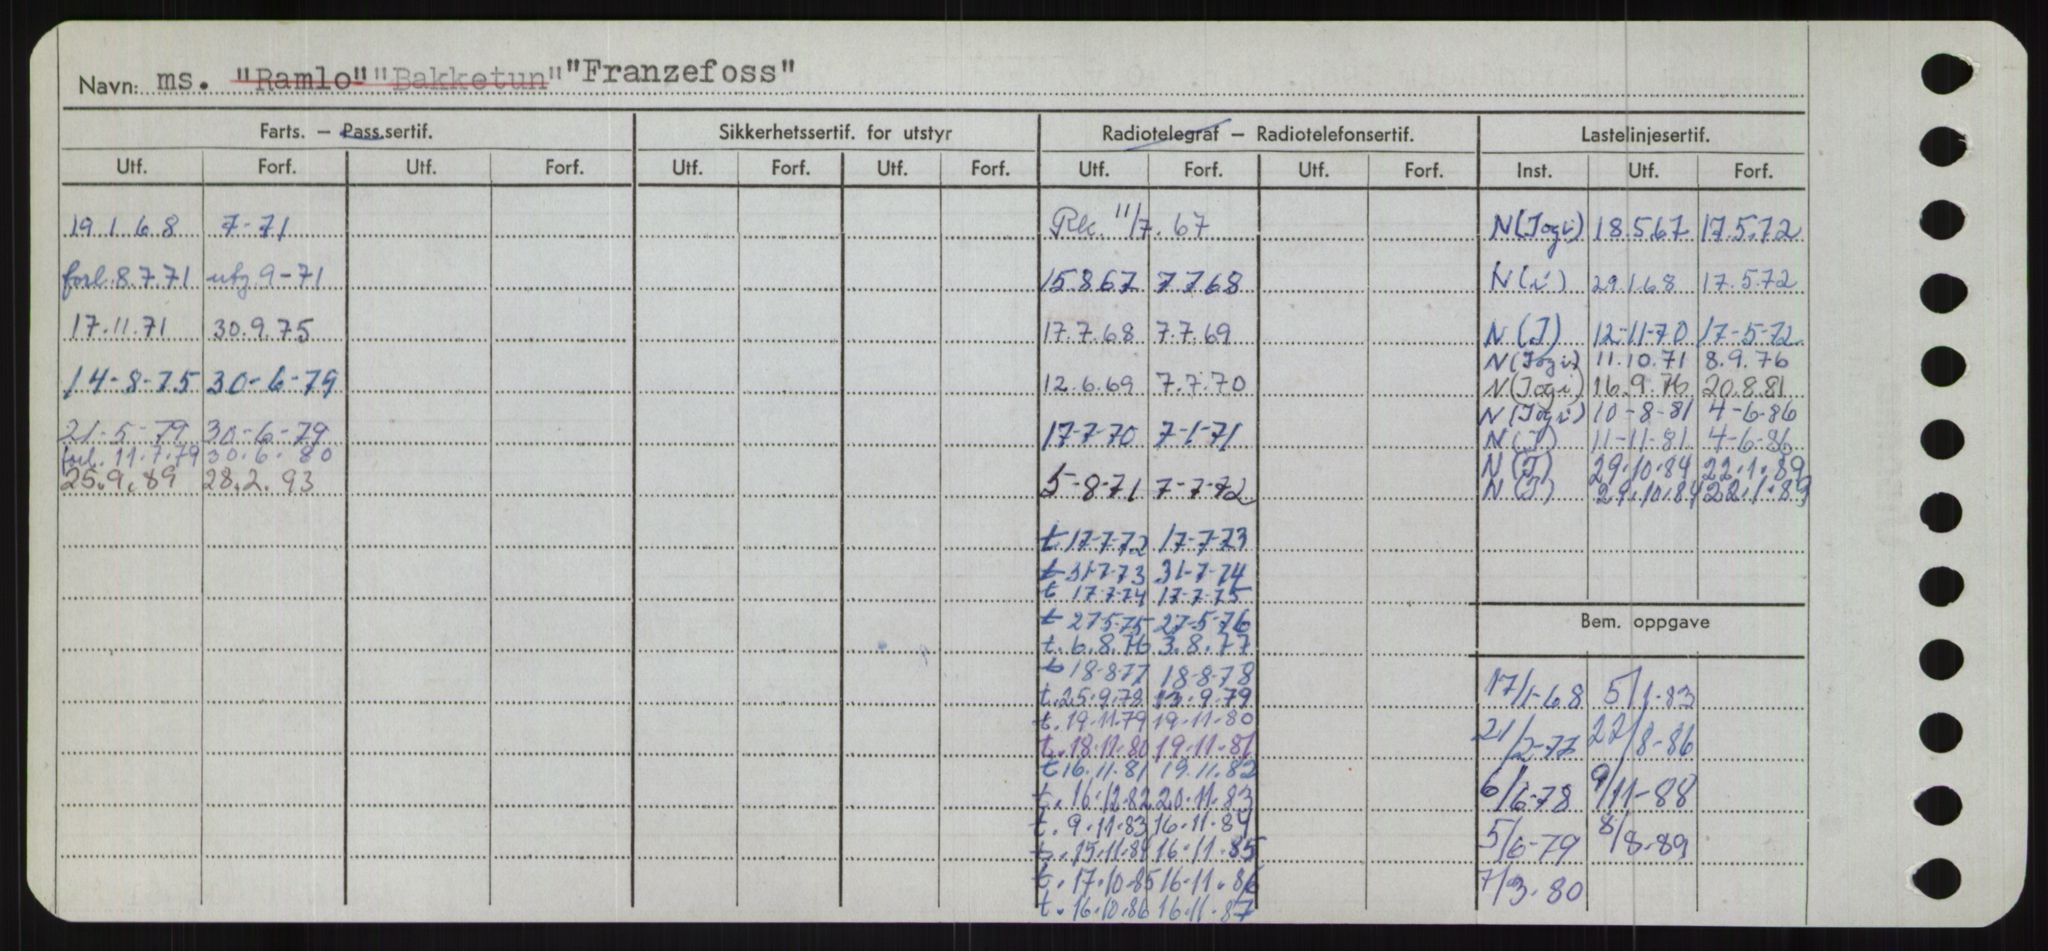 Navn: ms. "Ramlo" "Bakketun" "Franzefoss"
Farts. — Pass.sertif. Sikkerhetssertif. for utstyr Radiotelegraf — Radiotelefonsertif. Lastelinjesertif.
Utf. Forf. Utf. Forf. Utf. Forf. Utf. Forf. Utf. Forf. Utf. Forf. Inst. Utf. Forf.
19 1 68 7-71
forl. 8.7.71 utg 9-71
17.11.71 30.9.75
14-8-75 30-6-79
21-5-79 30-6-79
forl. 11.7.79 30.6.80
25.9.89 28.2.93
Rk. 11/7.67
15.8.67 7.7.68
17.7.68 7.7.69
12.6.69 7.7.70
17-7-70 7-1-71
5-8-71 7-7-72
t. 17-7-72 17-7-73
t 31-7-73 31-7-74
t 17-7-74 17-7-75
t 27.5-75 27-5-76
t. 6.8.76 3.8.77
t 18-8-77 18-8-78
t. 25.9.78 13.9.79
t. 19.11.79 19.11.80
t. 18.11.80 19.11.81
t 16.11.81 19.11.82
t. 16.12.82 20.11.83
t. 9.11.83 16.11.84
t. 15.11.84 16.11.85
t. 17.10.85 16.11.86
t. 16.10.86 16.11.87
N(Iogi) 18.5.67 17.5.72
N(i) 29.1.68 17.5.72
N(I) 12-11-70 17-5-72
N(Iogi) 11.10.71 8.9.76
N(Iogi) 16.9.76 20.8.81
N(Iogi) 10-8-81 4-6-86
N(I) 11-11-81 4-6-86
N(I) 29.10.84 22.1.89
N(I) 29.10.84 22.1.89
Bem. oppgave
17/1-68 5/1-83
21/2-77 22/8-86
6/6-78 9/11-88
5/6-79 8/8-89
7/3.80